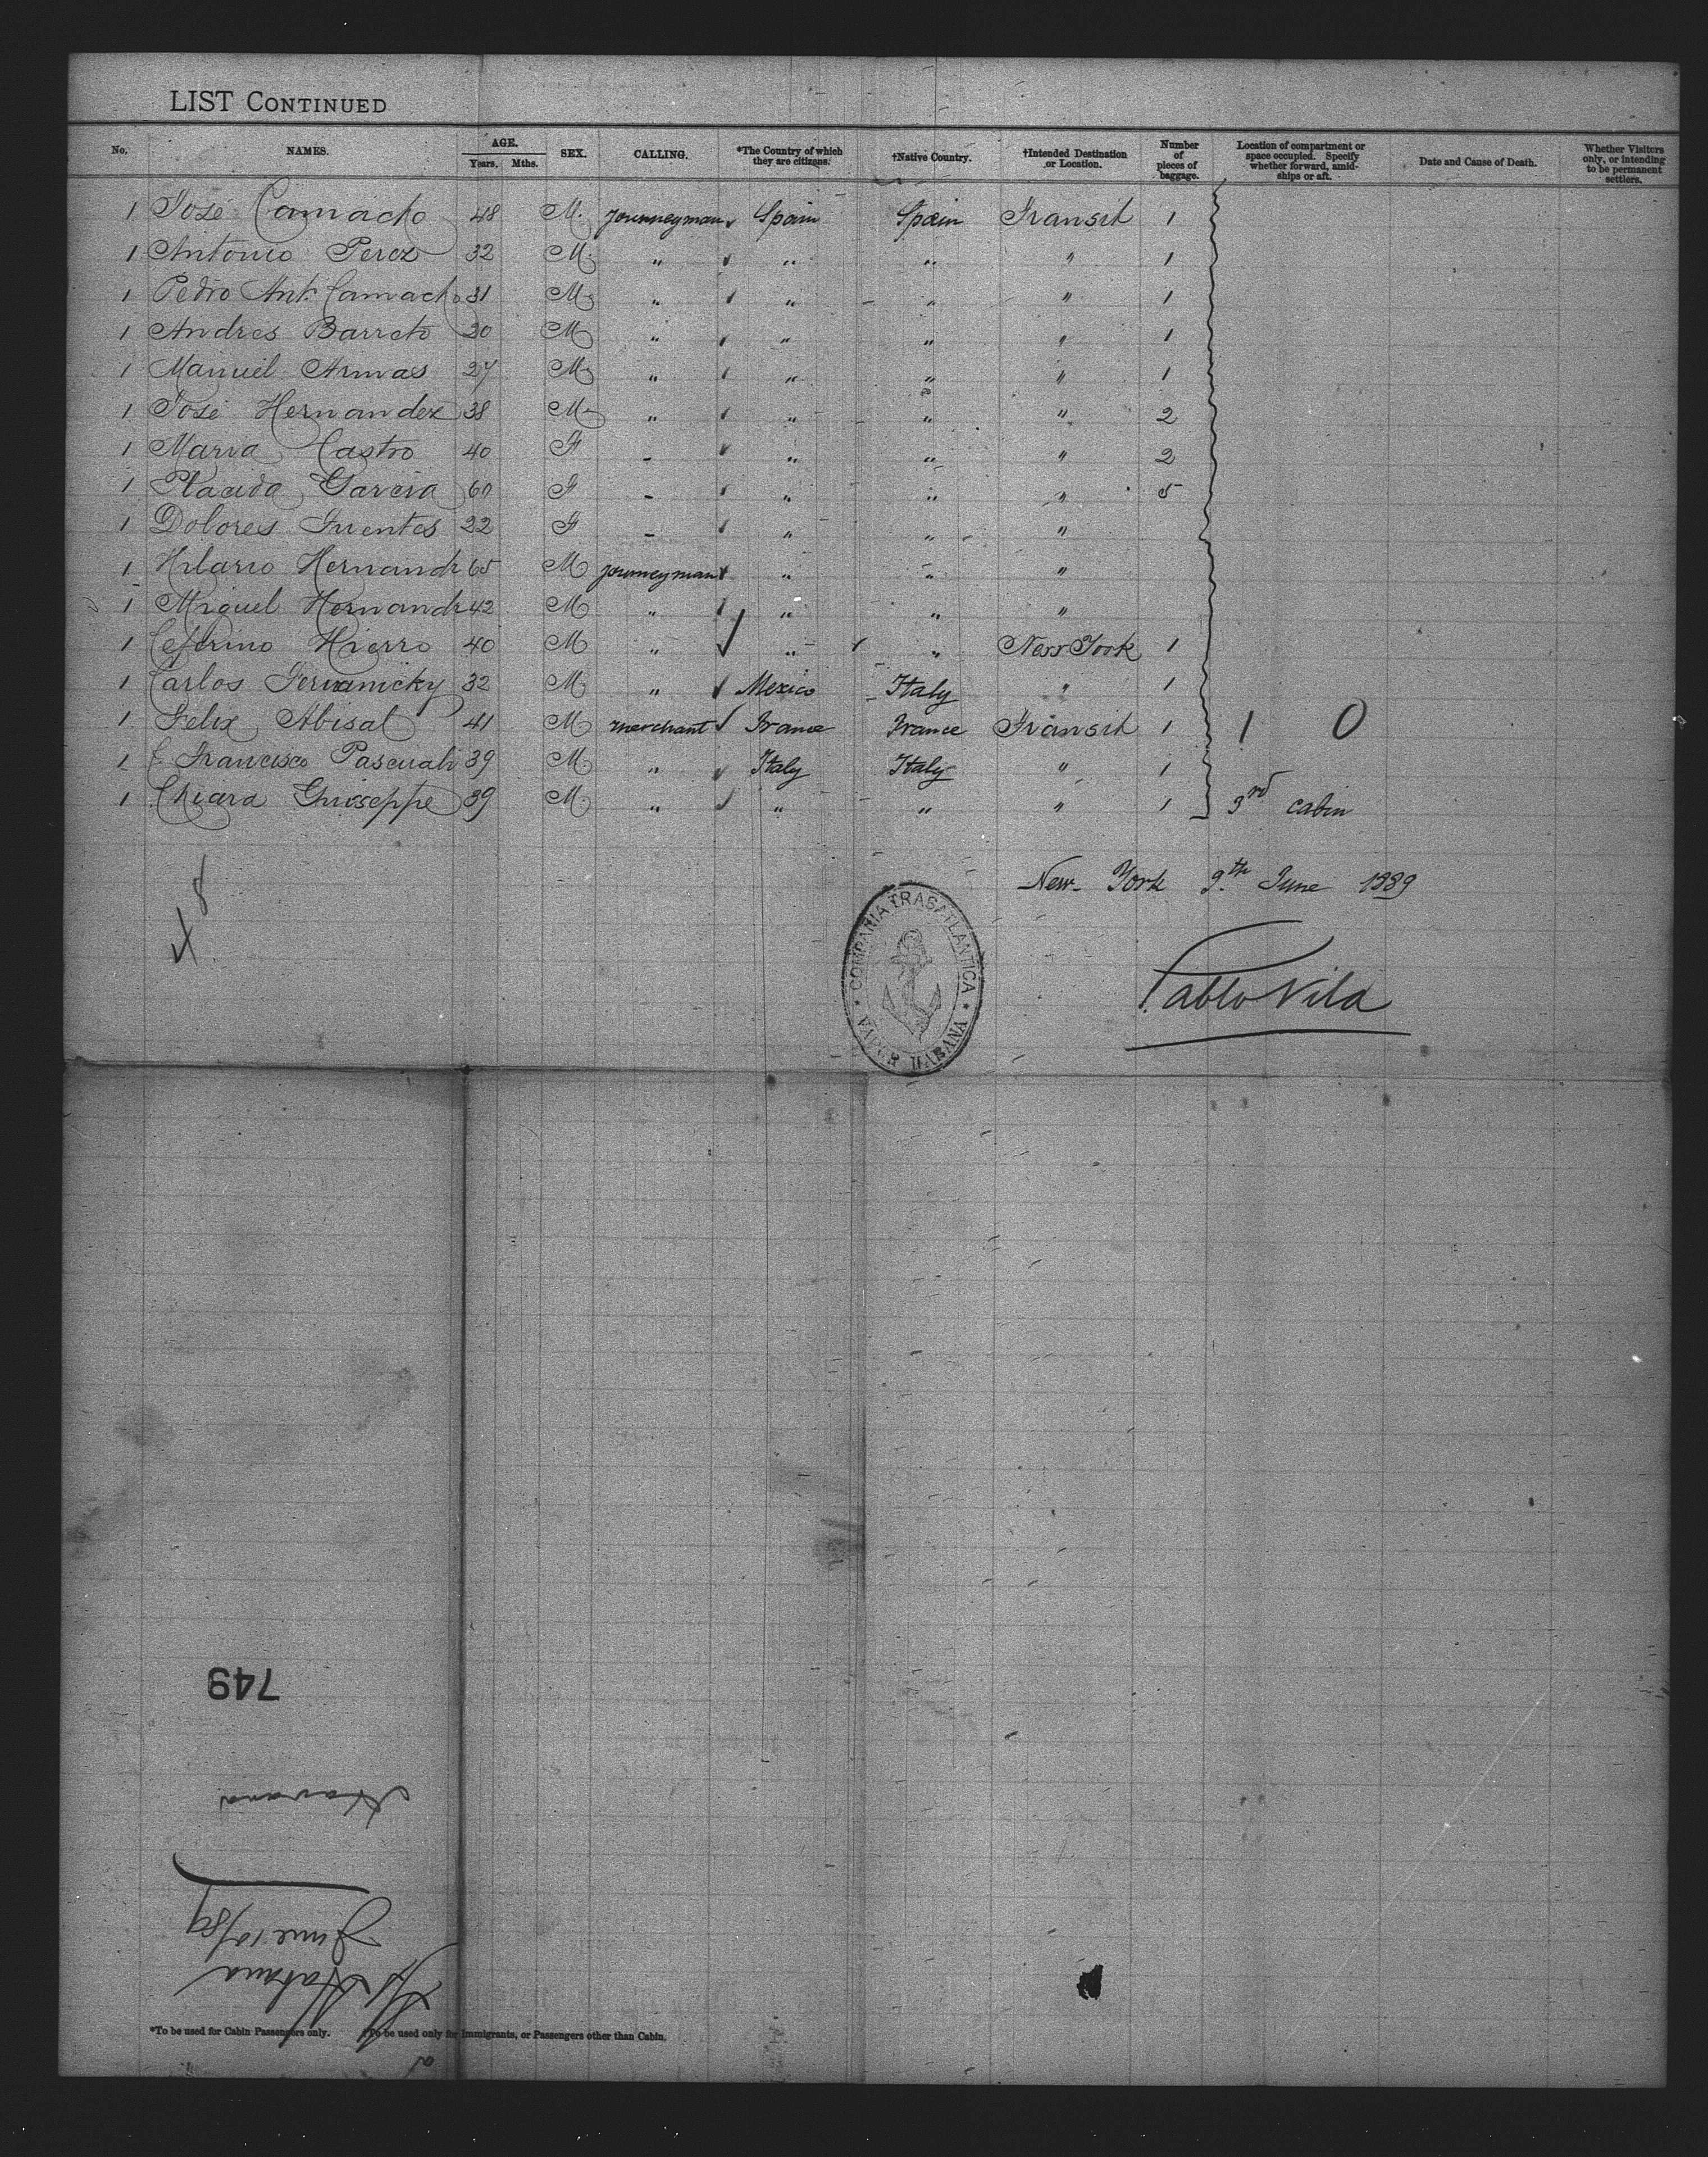 LIST CONTINUED
No. NAMES. AGE. Years. Mths. SEX. CALLING. *The Country of which they are citizens. †Native Country. †Intended Destination or Location. Number of pieces of baggage. Location of compartment or space occupied. Specify whether forward, amid-ships or aft. Date and Cause of Death. Whether Visitors only, or intending to be permanent settlers.
1 José Camacho 48 M. journeyman Spain Spain Transit 1
1 Antonio Perez 32 M. " " " " 1
1 Pedro Ant. Camacho 31 M. " " " " 1
1 Andres Barreto 20 M " " " " 1
1 Manuel Armas 27 M. " " " " 1
1 José Hernandez 38 M. " " " " 2
1 Maria Castro 40 F - " " " 2
1 Placida Garcia 60 F - " " " 5
1 Dolores Fuentes 22 F - " " "
1 Hilario Hernandz 65 M journeyman " " "
1 Miguel Hernandz 42 M " " " "
1 Ceferino Hierro 40 M " " " New York 1
1 Carlos 32 M " Mexico Italy " 1
1 Felix Abisal 41 M merchant France France Transit 1 1 0
1 Francisco Pascuali 39 M. " Italy Italy " 1
1 Chiara Ghiseppe 39 M. " " " " 1 3rd cabin
New-York 9.th June 1889
8
X
COMPAÑIA TRASATLANTICA
VAPOR HABANA
Pablo Vila
749
Havana
June 10/89
Habana
*To be used for Cabin Passengers only. †To be used only for Immigrants, or Passengers other than Cabin.